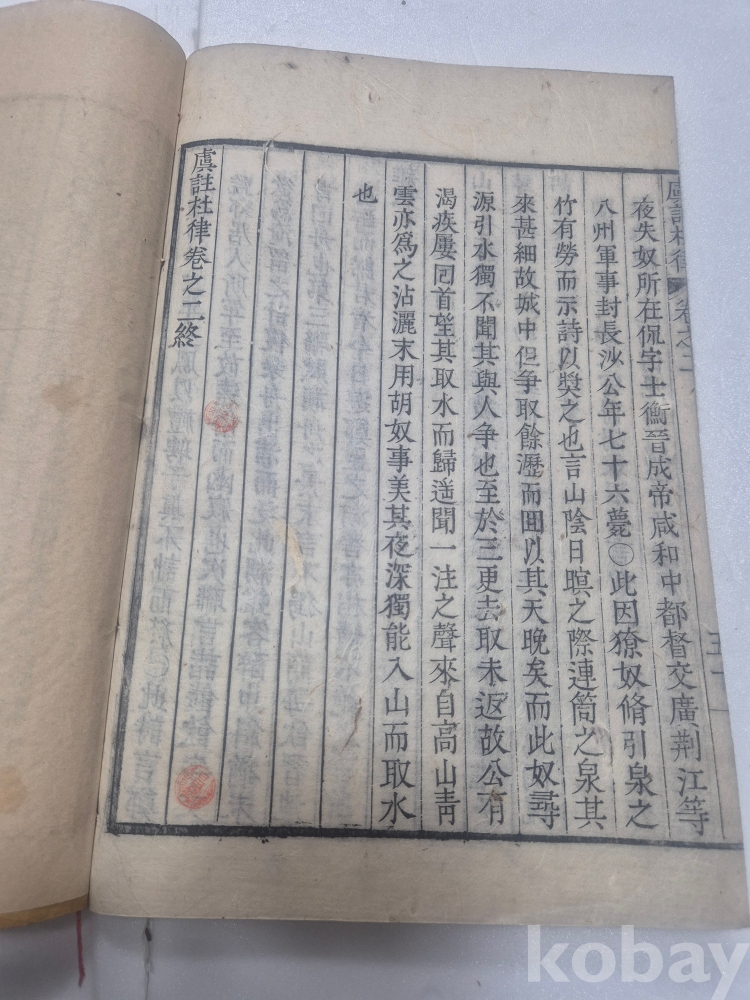 虞註杜律 卷之二
夜失奴所在侃字士衡晉成帝咸和中都督交廣荆江等
八州軍事封長沙公年七十六薨〇此因獠奴脩引泉之
竹有勞而示詩以奨之也言山陰日暝之際連筒之泉其
來甚細故城中但争取餘瀝而囬以其天晚矣而此奴尋
源引水獨不聞其與人争也至於三更去取未返故公有
渴疾屢囘首望其取水而歸遥聞一注之聲來自高山青
雲亦爲之沾灑末用胡奴事美其夜深獨能入山而取水
也
虞註杜律卷之二終
kobay